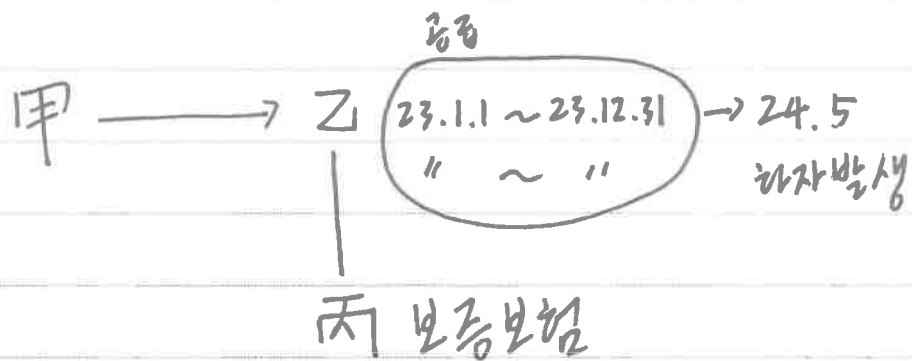 공토
甲 → 乙 23.1.1 ~ 23.12.31 → 24.5
" ~ " 하자발생
丙 보증보험